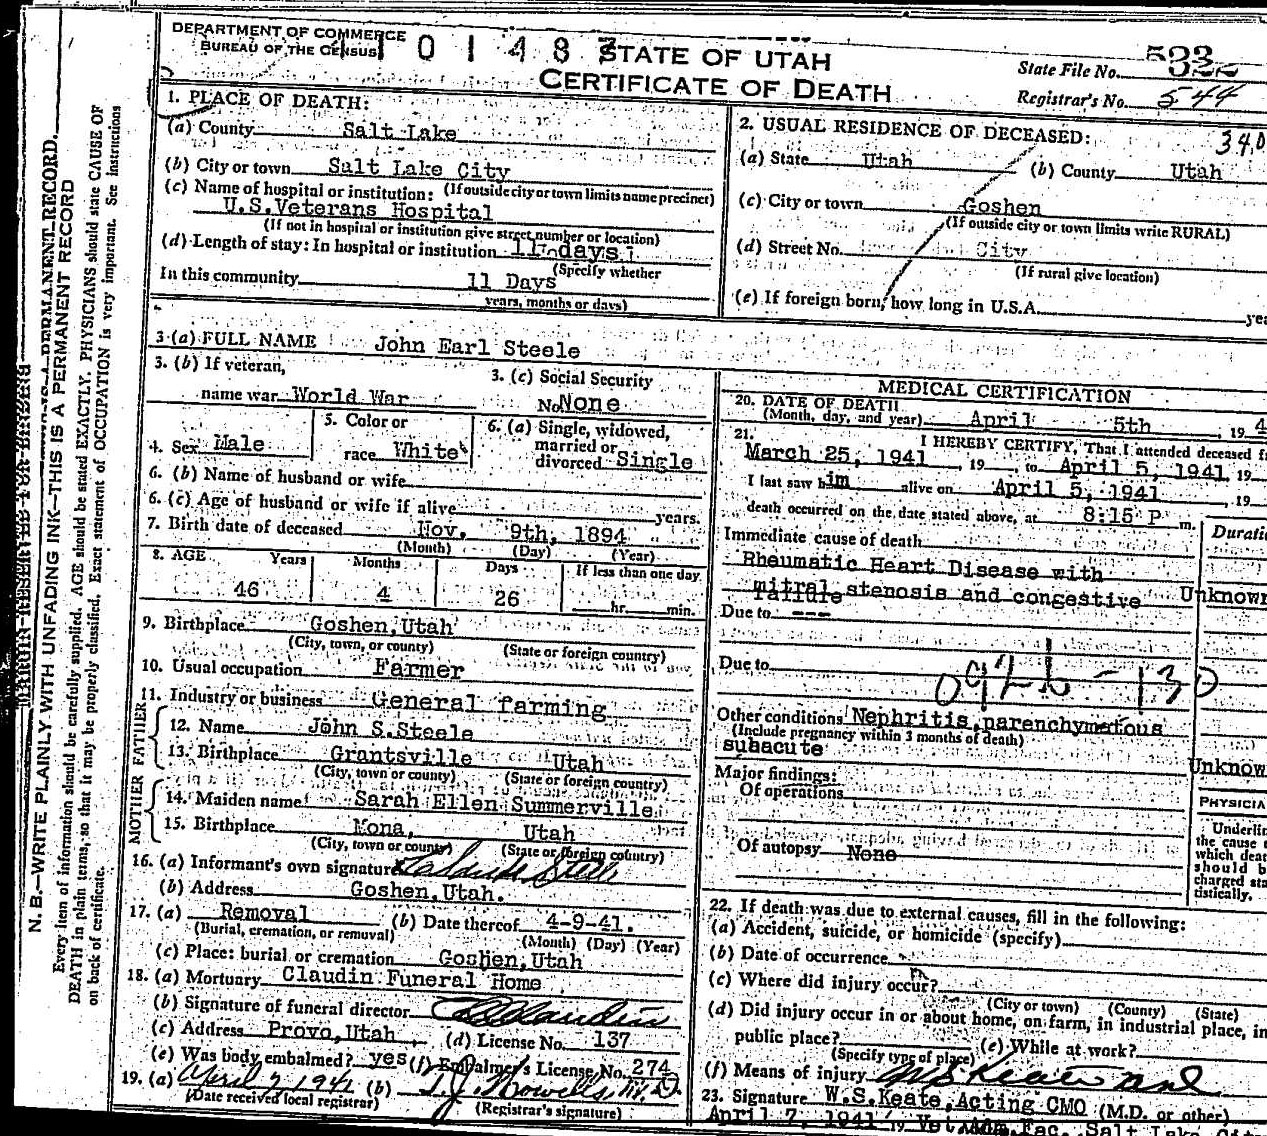 DEPARTMENT OF COMMERCE
BUREAU OF THE CENSUS
STATE OF UTAH
CERTIFICATE OF DEATH
State File No. 532
Registrar's No. 544
1. PLACE OF DEATH:
(a) County Salt Lake
(b) City or town Salt Lake City
(c) Name of hospital or institution: (If outside city or town limits name precinct)
U.S.Veterans Hospital
(If not in hospital or institution give street number or location)
(d) Length of stay: In hospital or institution 11 days
(Specify whether
In this community 11 Days
years, months or days)
2. USUAL RESIDENCE OF DECEASED:
(a) State Utah (b) County Utah
(c) City or town Goshen
(If outside city or town limits write RURAL)
(d) Street No. City
(If rural give location)
(e) If foreign born, how long in U.S.A.
3 (a) FULL NAME John Earl Steele
3. (b) If veteran,
name war World War
3. (c) Social Security
No. None
4. Sex Male
5. Color or
race White
6. (a) Single, widowed,
married or
divorced Single
6. (b) Name of husband or wife
6. (c) Age of husband or wife if alive years.
7. Birth date of deceased Nov. 9th, 1894
(Month) (Day) (Year)
8. AGE Years Months Days If less than one day
46 4 26 hr. min.
9. Birthplace Goshen, Utah
(City, town, or county) (State or foreign country)
10. Usual occupation Farmer
11. Industry or business General farming
FATHER
12. Name John S.Steele
13. Birthplace Grantsville Utah
(City, town or county) (State or foreign country)
MOTHER
14. Maiden name Sarah Ellen Summerville
15. Birthplace Mona, Utah
(City, town or county) (State or foreign country)
16. (a) Informant's own signature
(b) Address Goshen, Utah.
17. (a) Removal (b) Date thereof 4-9-41.
(Burial, cremation, or removal) (Month) (Day) (Year)
(c) Place: burial or cremation Goshen, Utah
18. (a) Mortuary Claudin Funeral Home
(b) Signature of funeral director
(c) Address Provo, Utah (d) License No. 137
(e) Was body embalmed? yes (f) Embalmer's License No. 274
19. (a) April 7 1941 (b)
(Date received local registrar) (Registrar's signature)
MEDICAL CERTIFICATION
20. DATE OF DEATH
(Month, day, and year) April 5th, 19 4
21. I HEREBY CERTIFY, That I attended deceased
March 25, 1941, 19 , to April 5, 1941 19
I last saw him alive on April 5, 1941, 19
death occurred on the date stated above, at 8:15 P m.
Immediate cause of death
Rheumatic Heart Disease with
mitral stenosis and congestive Unknown
failure
Due to ---
Due to
Other conditions Nephritis, parenchymatous
(Include pregnancy within 3 months of death)
subacute
Major findings:
Of operations
Of autopsy None
22. If death was due to external causes, fill in the following:
(a) Accident, suicide, or homicide (specify)
(b) Date of occurrence
(c) Where did injury occur?
(City or town) (County) (State)
(d) Did injury occur in or about home, on farm, in industrial place, in
public place? (e) While at work?
(Specify type of place)
(f) Means of injury
23. Signature W.S.Keate, Acting CMO (M.D. or other)
April 7, 1941 19 Vet. Adm. Fac. Salt Lake City
N. B.—WRITE PLAINLY WITH UNFADING INK—THIS IS A PERMANENT RECORD
Every item of information should be carefully supplied. AGE should be stated EXACTLY. PHYSICIANS should state CAUSE OF
DEATH in plain terms, so that it may be properly classified. Exact statement of OCCUPATION is very important. See instructions
on back of certificate.